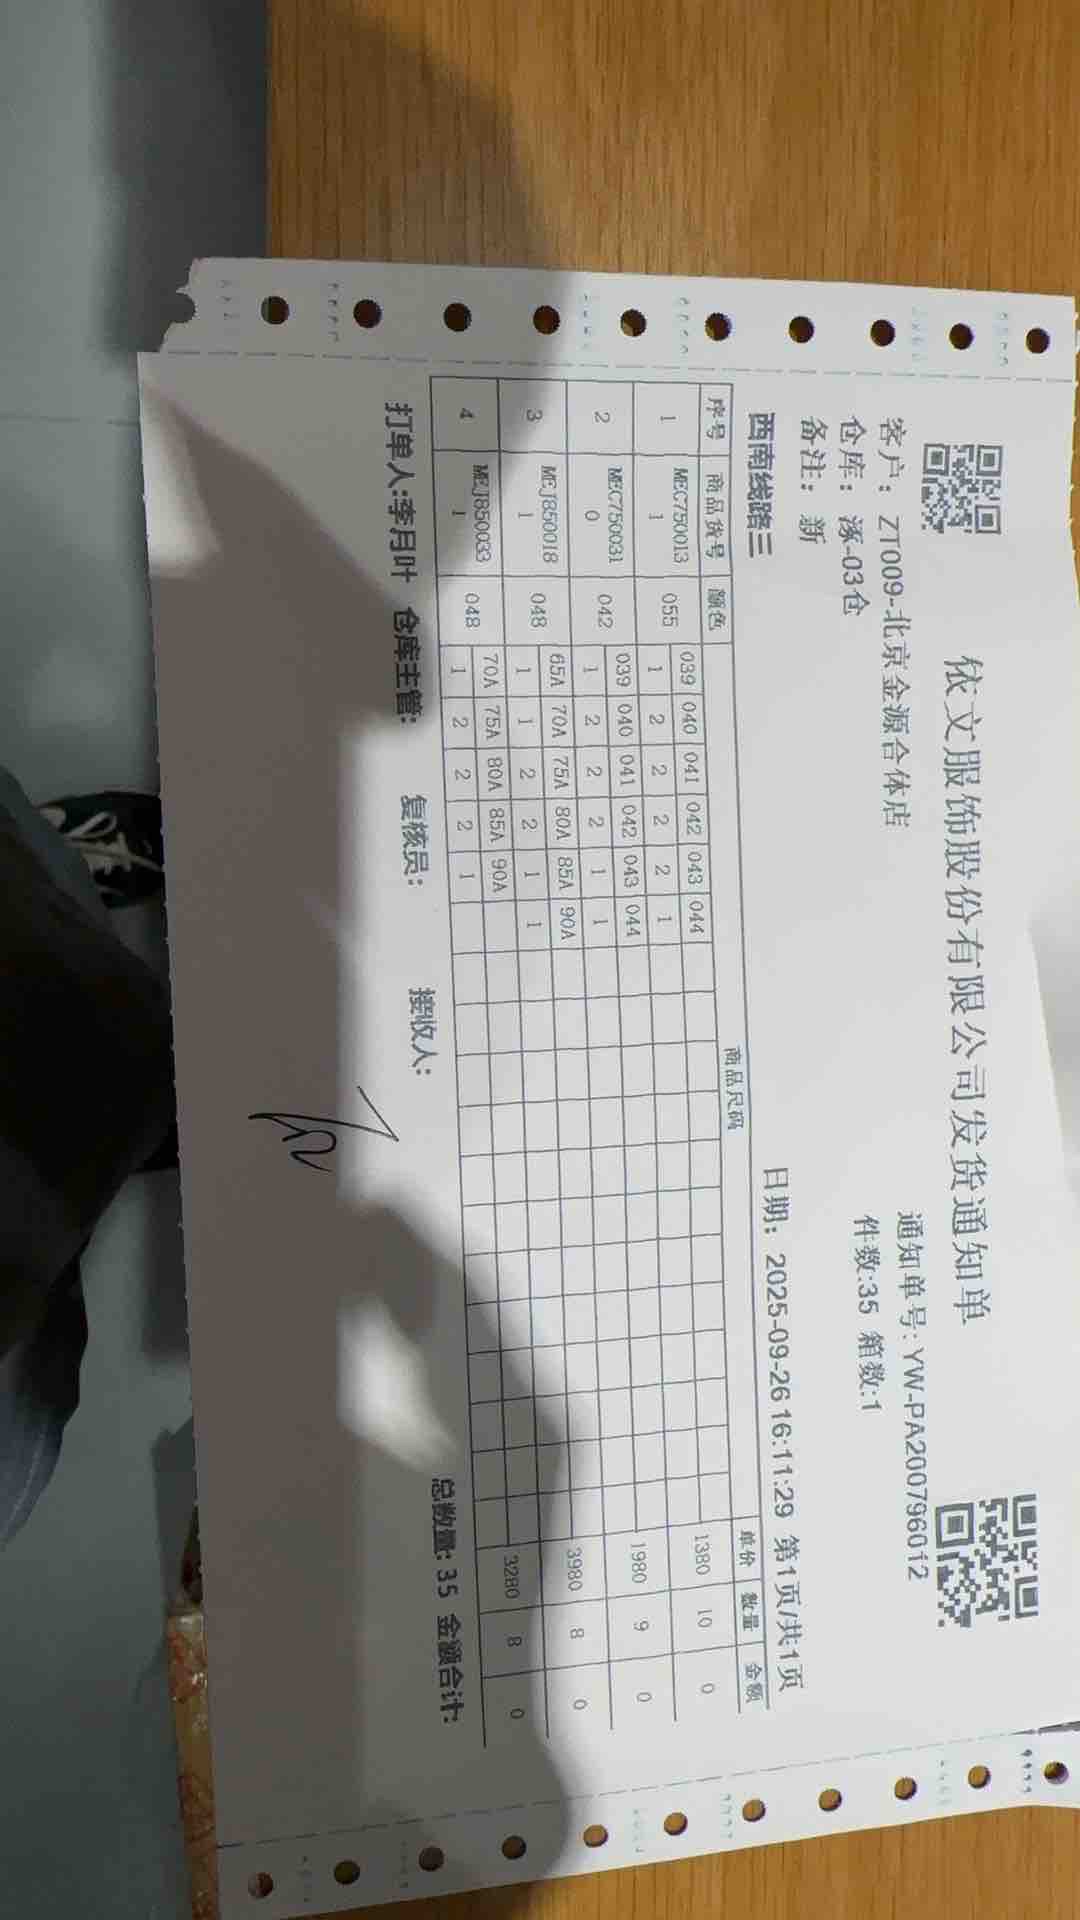 依文服饰股份有限公司发货通知单
客户： ZT009-北京金源合体店 通知单号: YW-PA200796012
仓库： 涿-03仓 件数:35 箱数:1
备注： 新
西南线路三 日期： 2025-09-26 16:11:29 第1页/共1页
序号 商品货号 颜色 商品尺码 单价 数量 金额
1 MEC750013 1 055 039 040 041 042 043 044 1380 10 0
1 2 2 2 2 1
2 MEC750031 0 042 039 040 041 042 043 044 1980 9 0
1 2 2 2 1 1
3 MEJ850018 1 048 65A 70A 75A 80A 85A 90A 3980 8 0
1 1 2 2 1 1
4 MEJ850033 1 048 70A 75A 80A 85A 90A 3280 8 0
1 2 2 2 1
总数量: 35 金额合计:
打单人:李月叶 仓库主管: 复核员: 接收人: